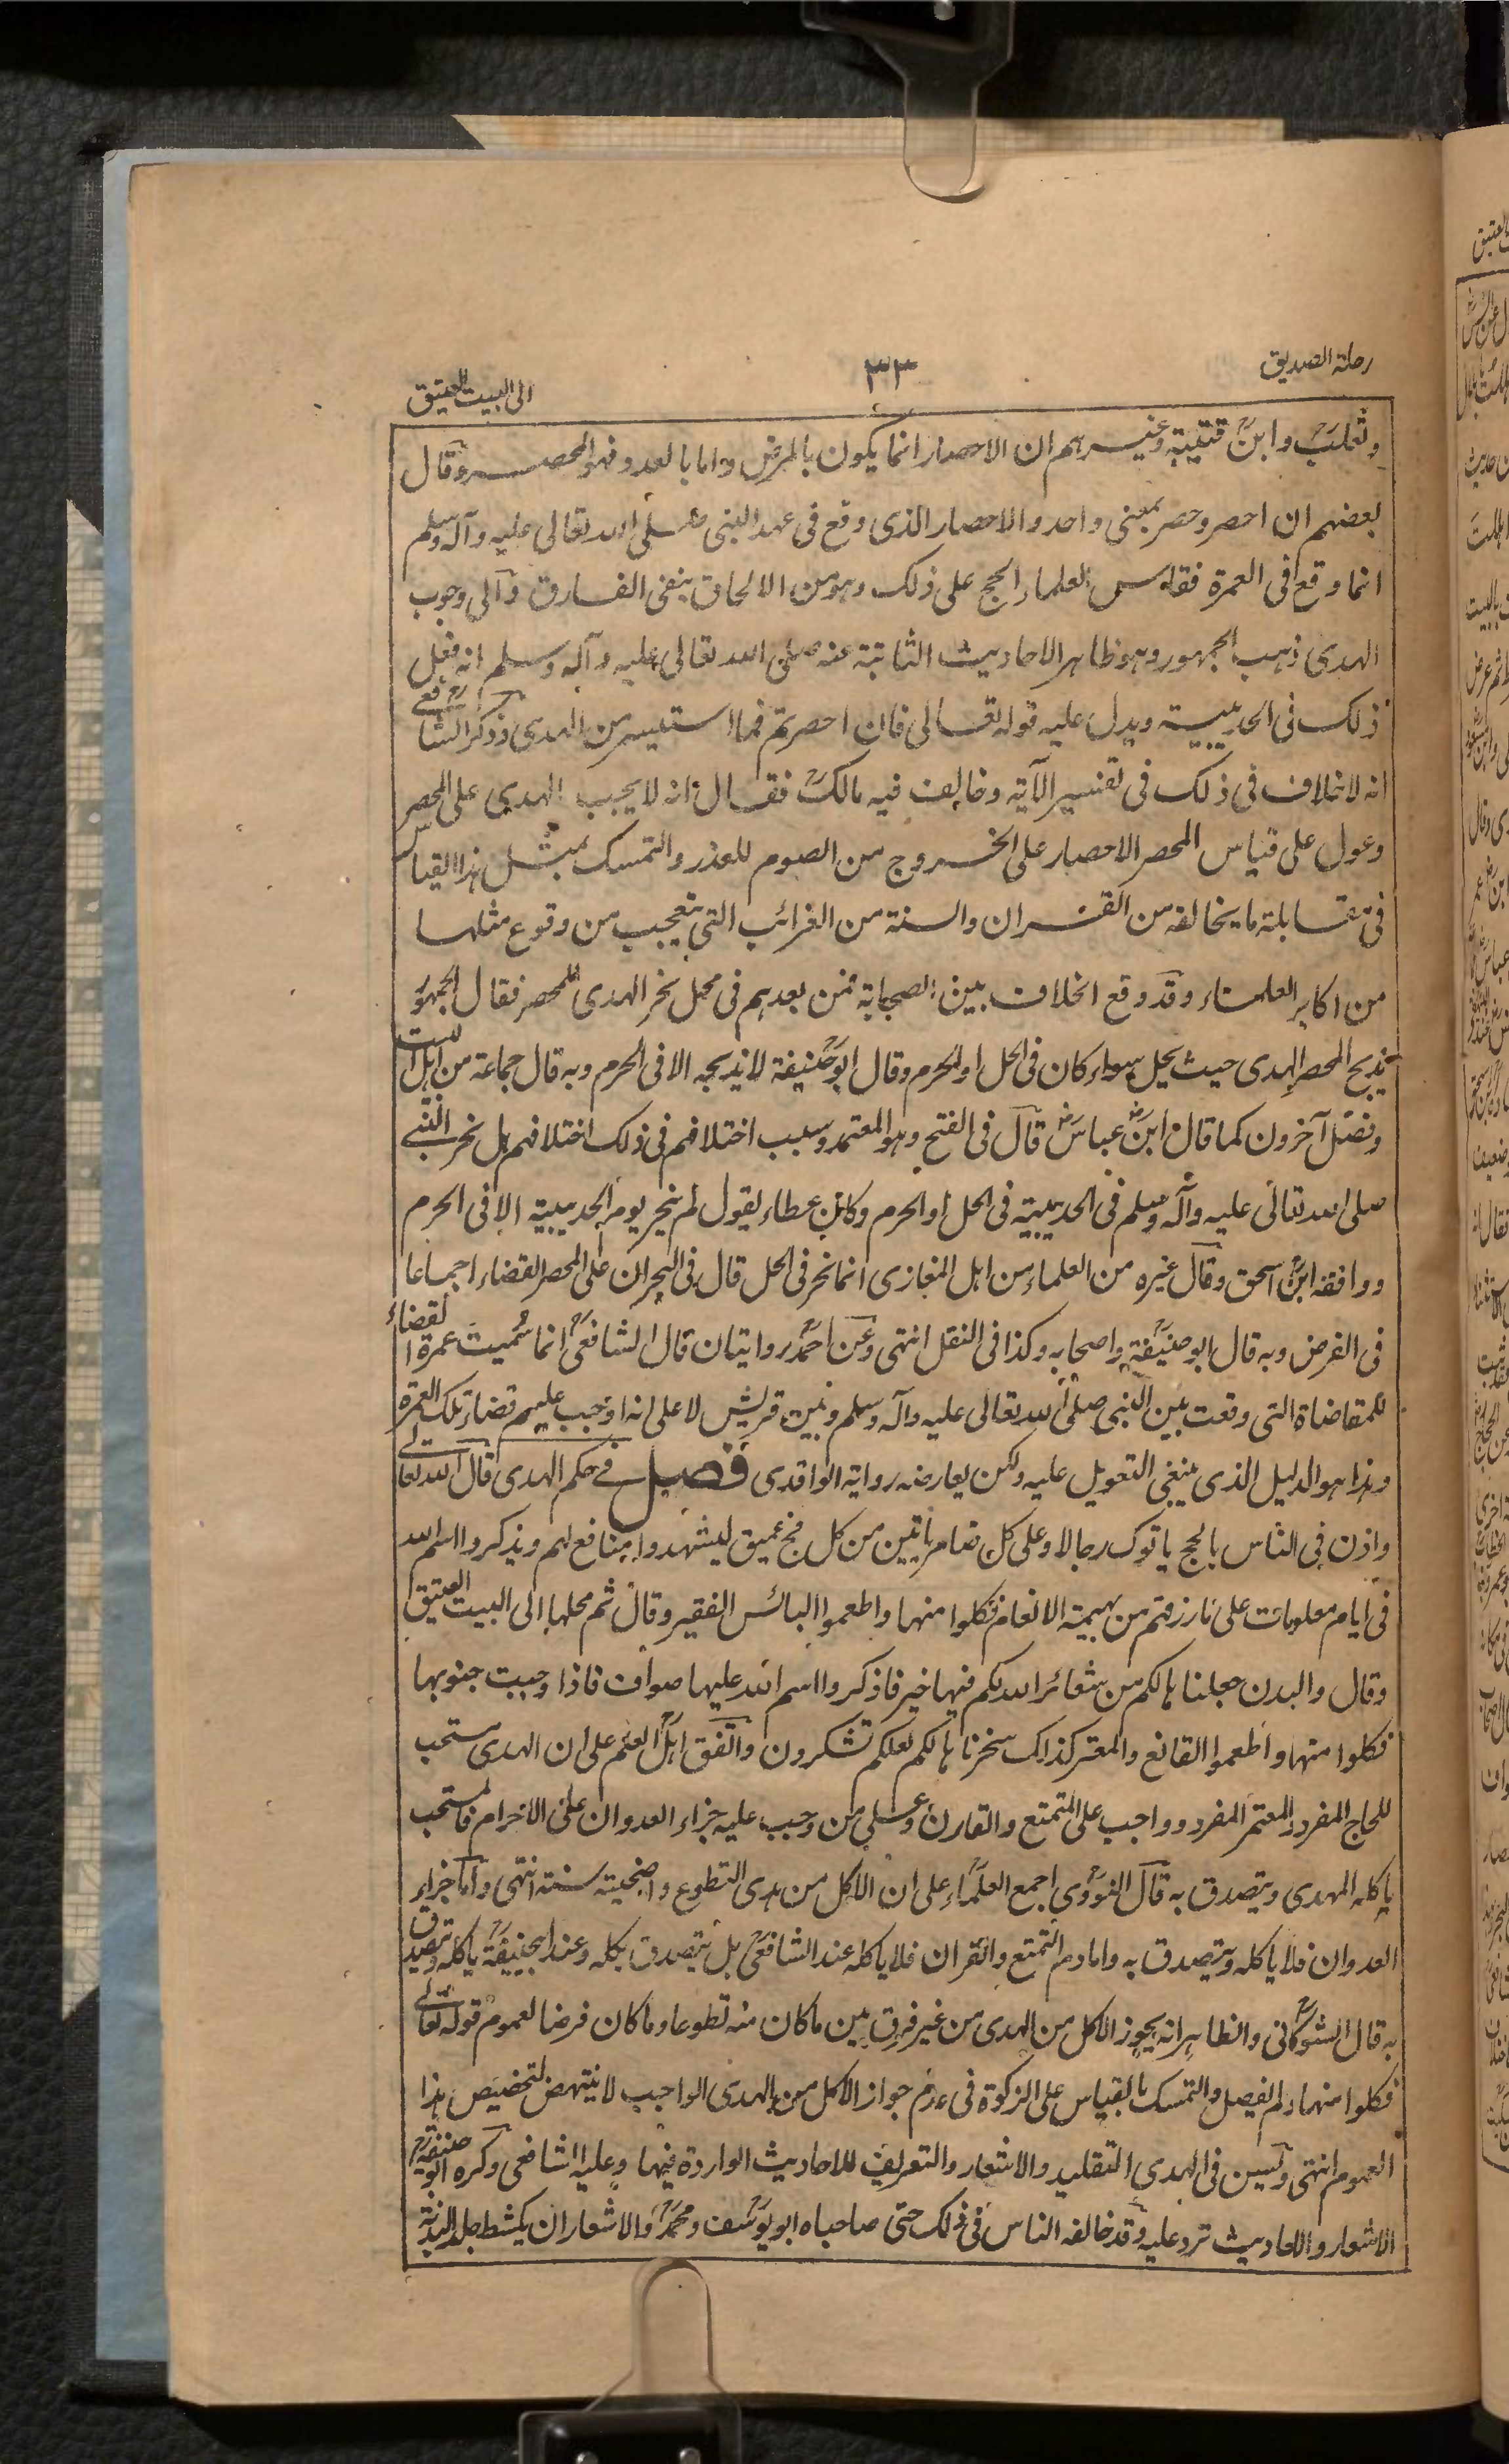 رحلة الصديق
٣٣
الى البيت العتيق
وثعلب وابن قتيبة وغيرهم ان الاحصار انما يكون بالمرض واما بالعدو فهو الحصر وقال
بعضهم ان احصر وحصر بمعنى واحد والاحصار الذى وقع فى عهد النبى صلى الله تعالى عليه وآله وسلم
انما وقع فى العمرة فقاس العلماء الحج على ذلك وهو من الالحاق بنفى الفارق والى وجوب
الهدى ذهب الجمهور وهو ظاهر الاحاديث الثابتة عنه صلى الله تعالى عليه وآله وسلم انه فعل
ذلك فى الحديبية ويدل عليه قوله تعالى فان احصرتم فما استيسر من الهدى وذكر الشافعى
انه لا خلاف فى ذلك فى تفسير الآية وخالف فيه مالك فقال انه لا يجب الهدى على المحصر
وعول على قياس المحصر الاحصار على الخروج من الصوم للعذر والتمسك بمثل هذا القياس
فى مقابلة ما يخالفه من القران والسنة من الغرائب التى يتعجب من وقوع مثلها
من اكابر العلماء وقد وقع الخلاف بين الصحابة فمن بعدهم فى محل نحر الهدى للمحصر فقال الجمهور
يذبح المحصر الهدى حيث يحل سواء كان فى الحل او الحرم وقال ابو حنيفة لا يذبحه الا فى الحرم وبه قال جماعة من اهل البيت
وفصل آخرون كما قال ابن عباس قال فى الفتح وهو المعتمد وسبب اختلافهم فى ذلك اختلافهم هل نحر النبى
صلى الله تعالى عليه وآله وسلم فى الحديبية فى الحل او الحرم وكان عطاء يقول لم ينحر يوم الحديبية الا فى الحرم
ووافقه ابن اسحق وقال غيره من العلماء من اهل المغازى انما نحر فى الحل قال فى البحر ان على المحصر القضاء اجماعا
فى الفرض وبه قال ابو حنيفة واصحابه وكذا فى النفل انتهى وعن احمد روايتان قال الشافعى انما سميت عمرة القضاء
للمقاضاة التى وقعت بين النبى صلى الله تعالى عليه وآله وسلم وبين قريش لا على انه اوجب عليهم قضاء تلك العمرة
وهذا هو الدليل الذى ينبغى التعويل عليه ولكن يعارضه رواية الواقدى فصل فى حكم الهدى قال الله تعالى
واذن فى الناس بالحج ياتوك رجالا وعلى كل ضامر ياتين من كل فج عميق ليشهدوا منافع لهم ويذكروا اسم الله
فى ايام معلومات على ما رزقهم من بهيمة الانعام فكلوا منها واطعموا البائس الفقير وقال ثم محلها الى البيت العتيق
وقال والبدن جعلناها لكم من شعائر الله لكم فيها خير فاذكروا اسم الله عليها صواف فاذا وجبت جنوبها
فكلوا منها واطعموا القانع والمعتر كذلك سخرناها لكم لعلكم تشكرون واتفق اهل العلم على ان الهدى مستحب
للحاج المفرد والمعتمر المفرد وواجب على المتمتع والقارن وعلى من وجب عليه جزاء العدوان على الاحرام فالمستحب
ياكله المهدى ويتصدق به قال النووى اجمع العلماء على ان الاكل من هدى التطوع واضحيته سنة انتهى واما جزاء
العدوان فلا ياكله ويتصدق به واما دم التمتع والقران فلا ياكله عند الشافعى بل يتصدق بكله وعند ابى حنيفة ياكله ويتصدق
به قال الشوكانى والظاهر انه يجوز الاكل من الهدى من غير فرق بين ما كان منه تطوعا وما كان فرضا لعموم قوله تعالى
فكلوا منها ولم الفيصل والتمسك بالقياس على الزكوة فى عدم جواز الاكل من الهدى الواجب لا ينتهض لتخصيص هذا
العموم انتهى ويسن فى الهدى التقليد والاشعار والتعريف للاحاديث الواردة فيها وعليه الشافعى وكره ابو حنيفة
الاشعار والاحاديث ترد عليه وقد خالفه الناس فى ذلك حتى صاحباه ابو يوسف ومحمد والاشعار ان يكشط جلد البدنة